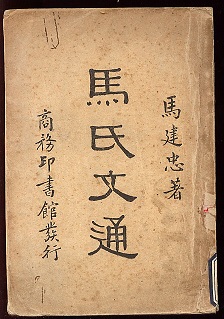 馬建忠著
馬氏文通
商務印書館發行